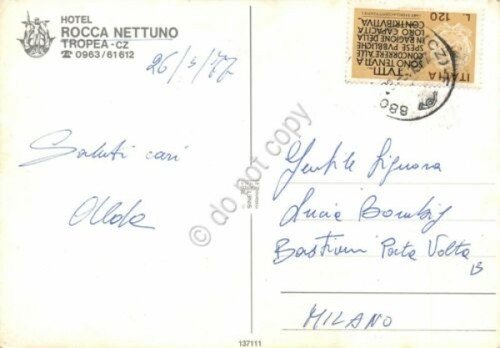 HOTEL
ROCCA NETTUNO
TROPEA - CZ
☎ 0963/61612
26/5/77
Saluti cari
Alda
137111
L. 120
ITALIA
TUTTI
SONO TENUTI A
CONCORRERE ALLE
SPESE PUBBLICHE
IN RAGIONE DELLA
LORO CAPACITÀ
CONTRIBUTIVA.
880
CZ)
Gentile Signora
Lucia
Bastioni Porta Volta
13
MILANO
do not copy